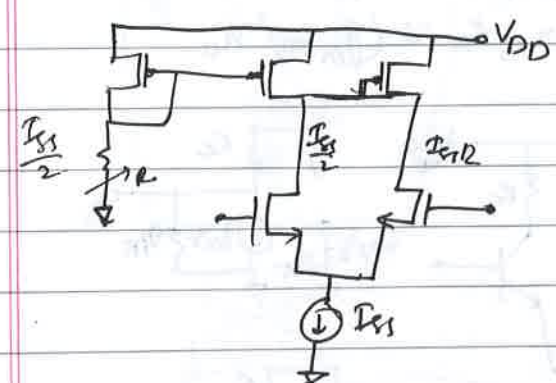 VDD
Iss/2
R
Iss/2
Iss/2
Iss